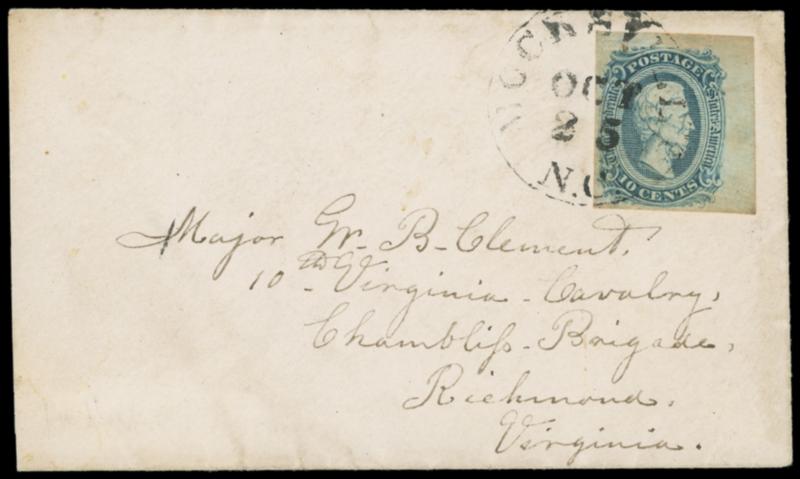 MOCKSVILLE
OCT
25
N.C.
POSTAGE
Confederate States of America
10 CENTS
Major Wm. B. Clement.
10th Virginia Cavalry,
Chambliſs Brigade,
Richmond,
Virginia.